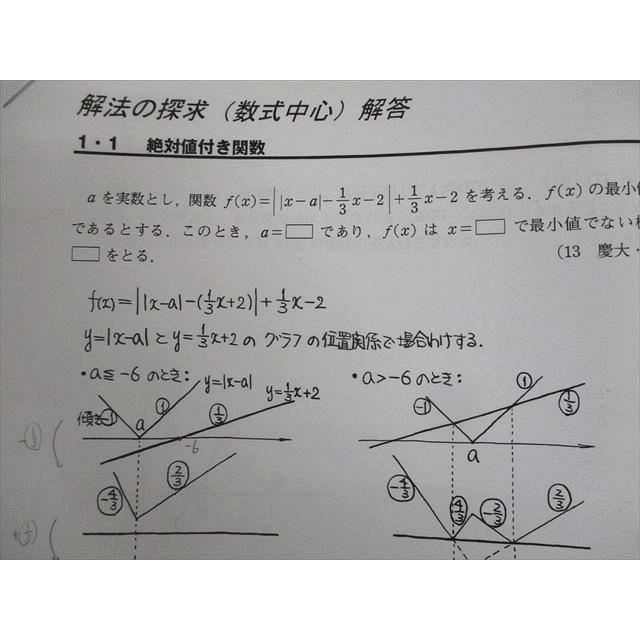 解法の探求（数式中心）解答
1・1 絶対値付き関数
aを実数とし，関数 f(x)=||x-a|-1/3x-2|+1/3x-2 を考える．f(x)の最小値
であるとする．このとき，a=□ であり，f(x) は x=□ で最小値でない
□ をとる． (13 慶大・
f(x)=||x-a|-(1/3x+2)|+1/3x-2
y=|x-a| と y=1/3x+2 の グラフの位置関係で場合わけする．
・a≦-6 のとき：
y=|x-a|
y=1/3x+2
傾き -1
a
1
1/3
-6
-1/3
-4/3
2/3
+1/3
・a>-6 のとき：
-1
1
1/3
a
-4/3
4/3
-2/3
2/3